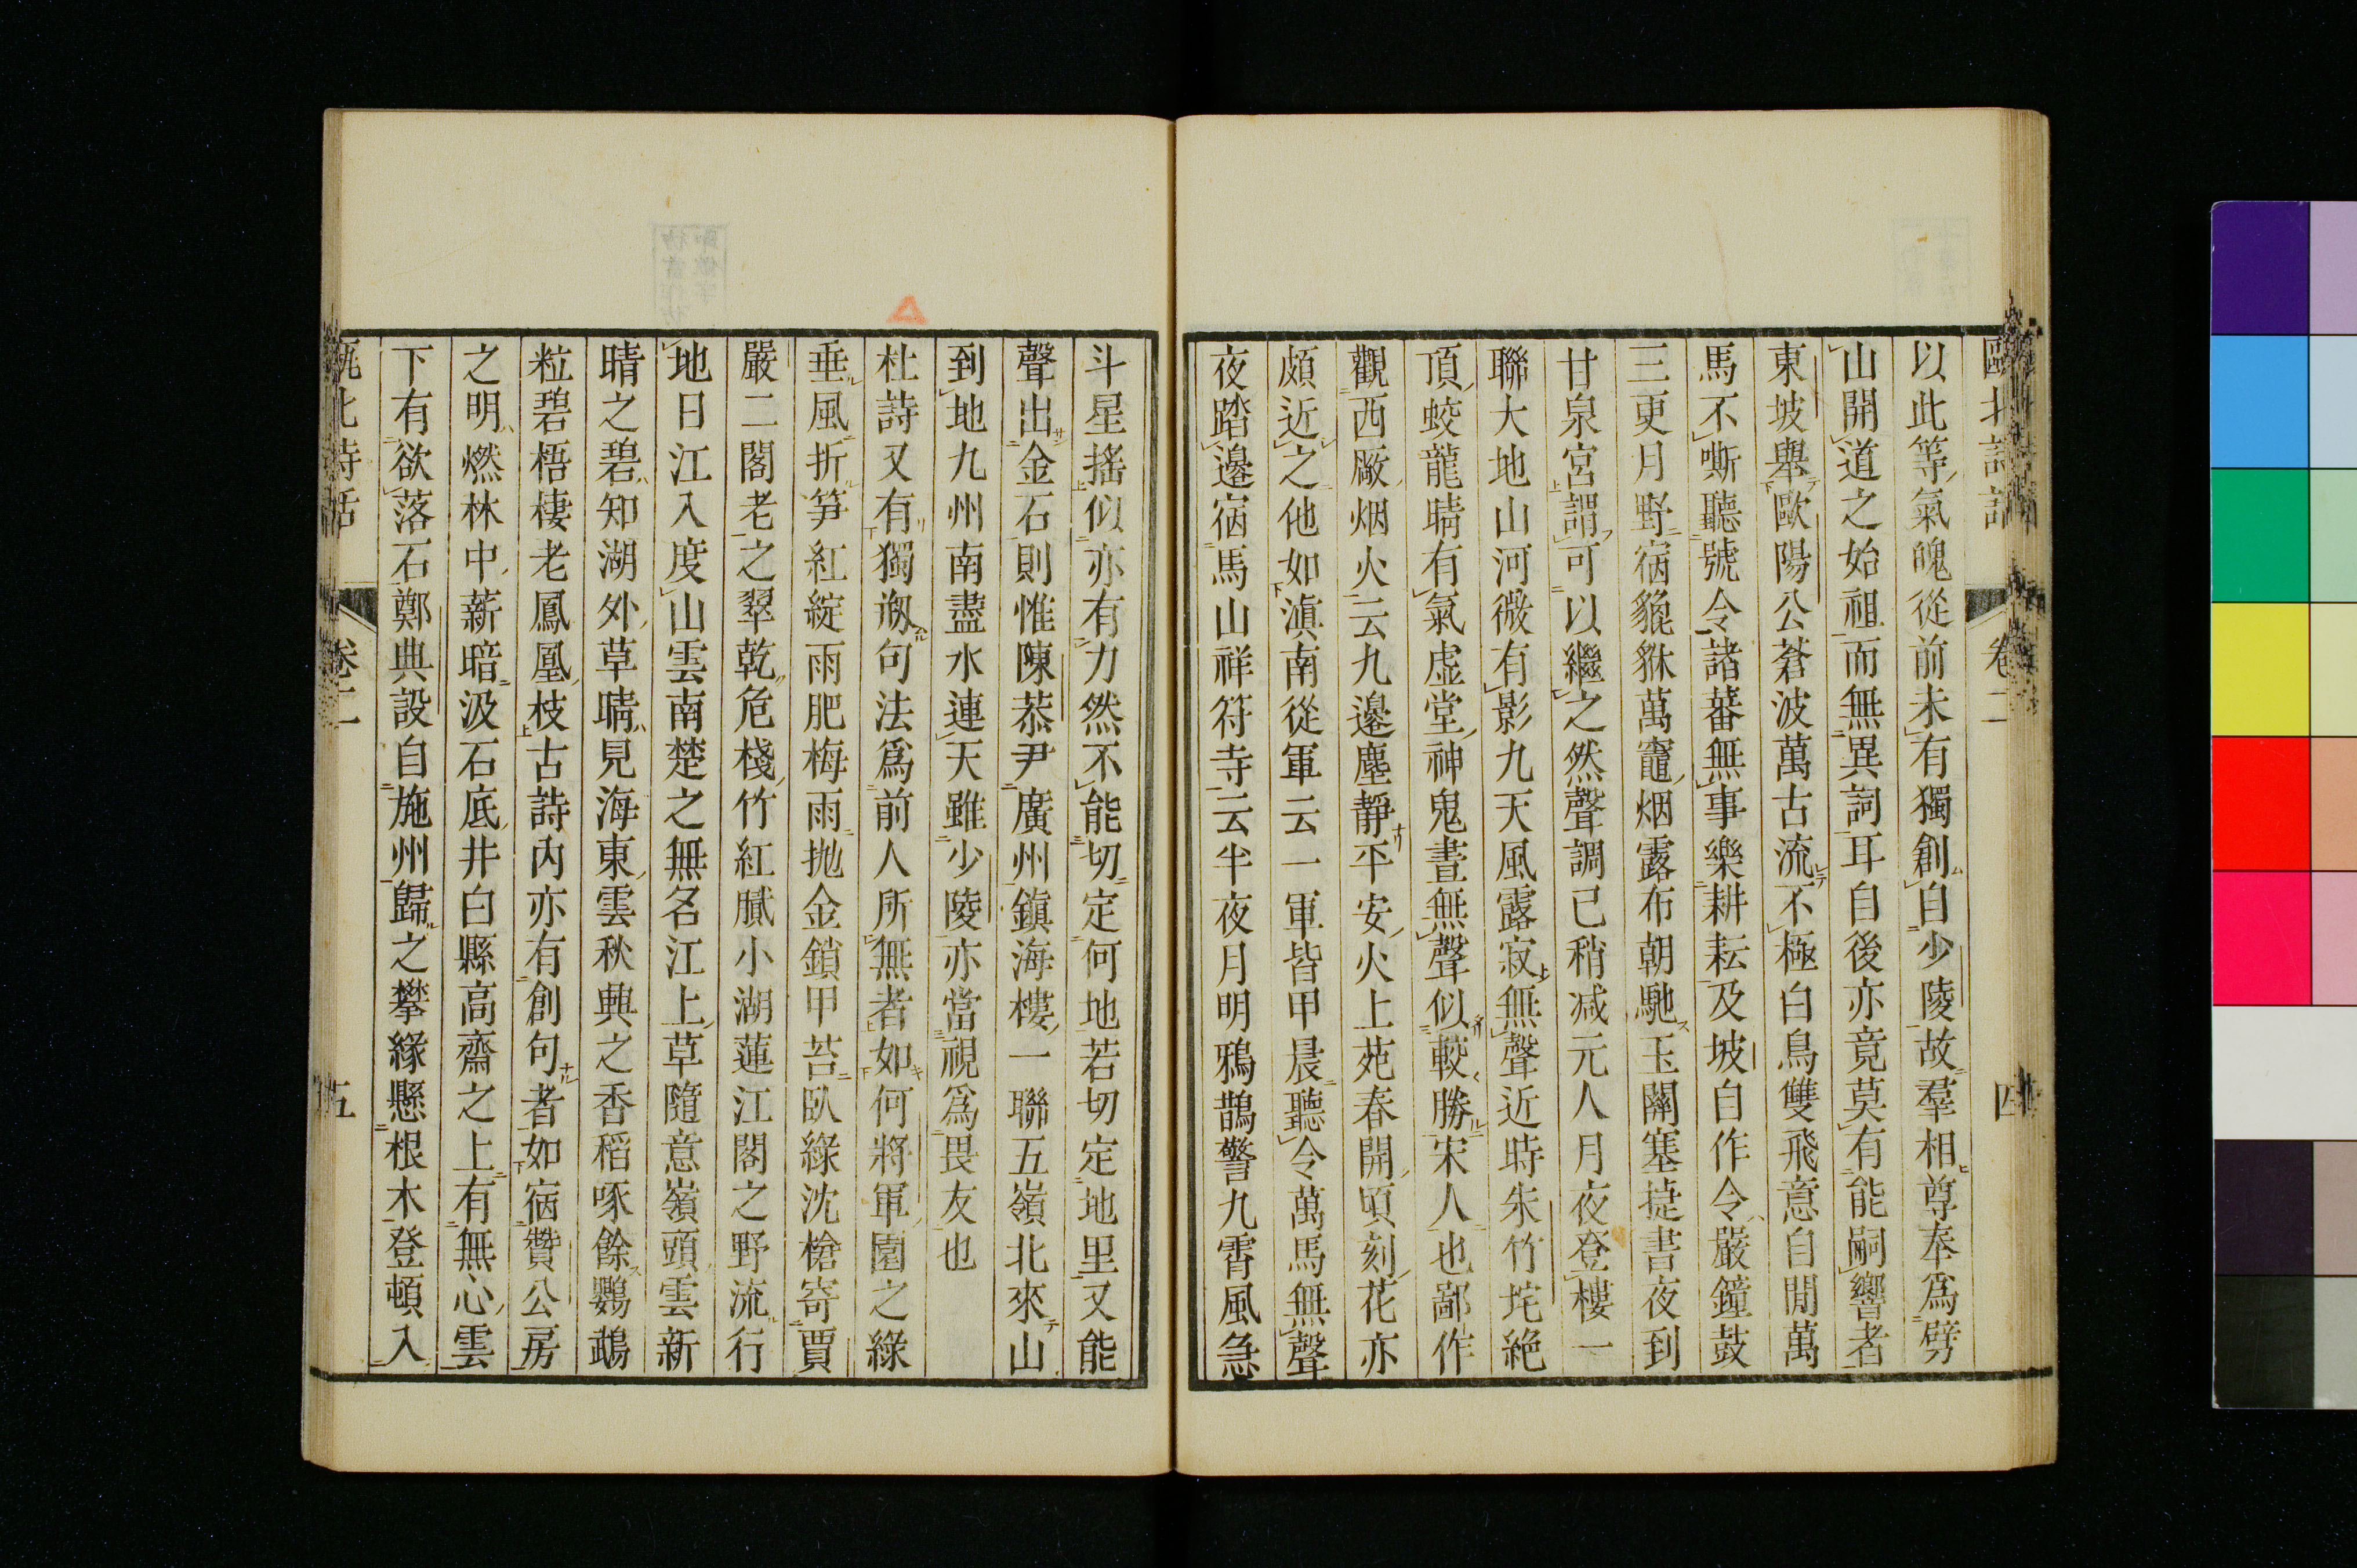 甌北詩話 卷二 四
以此等氣魄從前未有獨創自少陵故羣相尊奉爲劈
山開道之始祖而無異詞耳自後亦竟莫有能嗣響者
東坡舉歐陽公蒼波萬古流不極白鳥雙飛意自閒萬
馬不嘶聽號令諸蕃無事樂耕耘及坡自作令嚴鐘鼓
三更月野宿貔貅萬竈烟露布朝馳玉關塞捷書夜到
甘泉宮謂可以繼之然聲調已稍減元人月夜登樓一
聯大地山河微有影九天風露寂無聲近時朱竹垞絶
頂蛟龍晴有氣虚堂神鬼晝無聲似較勝宋人也鄙作
觀西厰烟火云九邊塵靜平安火上苑春開頃刻花亦
頗近之他如滇南從軍云一軍皆甲晨聽令萬馬無聲
夜踏邊宿馬山祥符寺云半夜月明鴉鵲警九霄風急
斗星搖似亦有力然不能切定何地若切定地里又能
聲出金石則惟陳恭尹廣州鎭海樓一聯五嶺北來山
到地九州南盡水連天雖少陵亦當視爲畏友也
杜詩又有獨剏句法爲前人所無者如何將軍園之綠
垂風折笋紅綻雨肥梅雨抛金鎖甲苔臥綠沈槍寄賈
嚴二閣老之翠乾危棧竹紅膩小湖蓮江閣之野流行
地日江入度山雲南楚之無名江上草隨意嶺頭雲新
晴之碧知湖外草晴見海東雲秋興之香稻啄餘鸚鵡
粒碧梧棲老鳳凰枝古詩內亦有創句者如宿贊公房
之明燃林中薪暗汲石底井白縣高齋之上有無心雲
下有欲落石鄭典設自施州歸之攀緣懸根木登頓入
甌北詩話 卷二 五